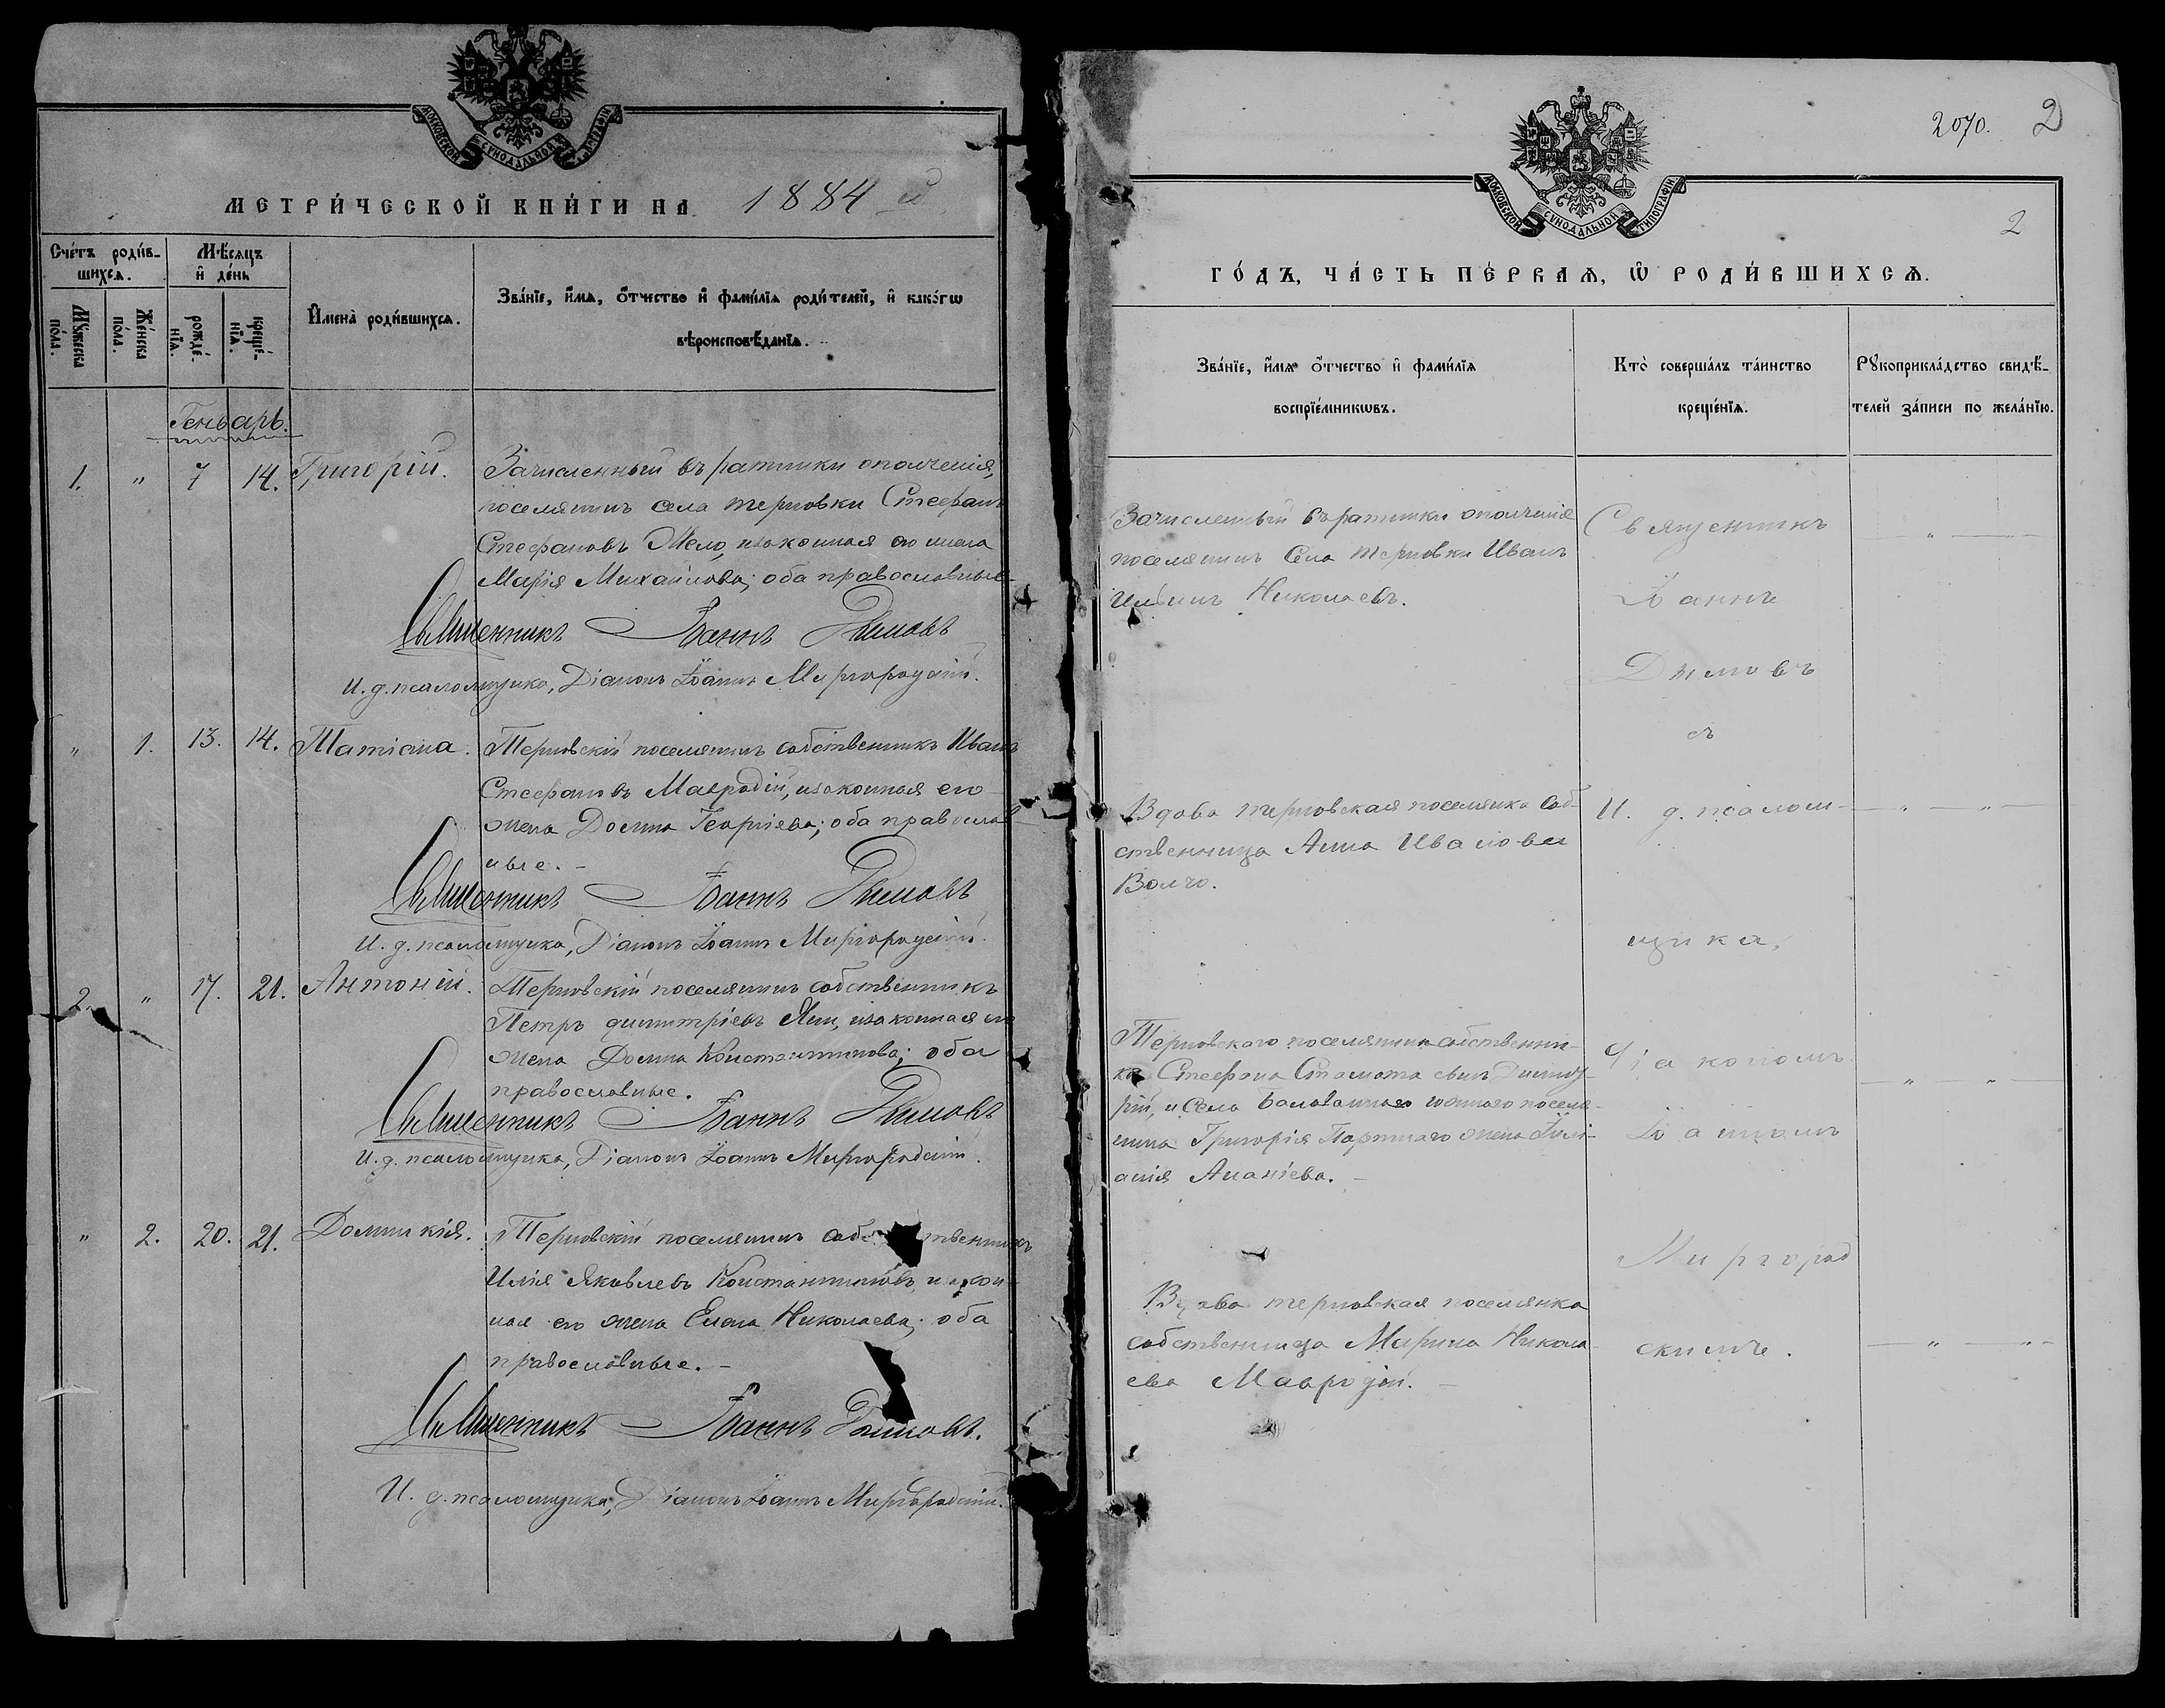 МОСКОВСКОЙ СѴНОДАЛЬНОЙ ТИПОГРАФІИ
МЕТРИ́ЧЕСКОЙ КНИ́ГИ НА 1884 й
Сче́тъ роди́в-
шихся.
Мѣ́сяцъ
и҆ де́нь
Мꙋ́жеска
по́ла.
Же́нска
по́ла.
рожде́-
нїѧ.
креще́-
нїѧ.
И҆мена̀ роди́вшихсѧ.
Зва́нїе, и҆́мѧ, ѻ҆́тчество и҆ фами́лїѧ роди́телей, и҆ како́гѡ
вѣроисповѣ́данїѧ.
Генварь.
1. " 7 14. Григорій.
Зачисленный въ ратники ополченія,
поселянинъ села Терновки Стефанъ
Стефановъ Жело, изаконная его жена
Марія Михайлова; оба православные
Священникъ Іоаннъ Димовъ
И. д. псаломщика, Діаконъ Іоаннъ Миргородскій.
" 1. 13. 14. Татіана.
Терновскій поселянинъ собственникъ Иванъ
Стефановъ Мавродій, изаконная его
жена Домна Георгіева; оба православ
ные. -
Священникъ Іоаннъ Димовъ
И. д. псаломщика, Діаконъ Іоаннъ Миргородскій.
2. " 17. 21. Антоній.
Терновскій поселянинъ собственникъ
Петръ Димитріевъ Яни, изаконная его
жена Домна Константинова; оба
православные.
Священникъ Іоаннъ Димовъ
И. д. псаломщика, Діаконъ Іоаннъ Миргородскій.
" 2. 20. 21. Домникія.
Терновскій поселянинъ собственникъ
Илія Яковлевъ Константиновъ, изакон-
ная его жена Елена Николаева; оба
православные. -
Священникъ Іоаннъ Димовъ.
И. д. псаломщика, Діаконъ Іоаннъ Миргородскій.
2070. 2
МОСКОВСКОЙ СѴНОДАЛЬНОЙ ТИПОГРАФІИ
2
ГО́ДЪ, ЧА́СТЬ ПЕ́РВАѦ, Ѡ҆ РОДИ́ВШИХСѦ.
Зва́нїе, и҆́мѧ ѻ҆́тчество и҆ фами́лїѧ
воспрїе́мникѡвъ.
Кто̀ соверша́лъ та́инство
креще́нїѧ.
Рꙋкоприкла́дство свидѣ́-
телей за́писи по жела́нїю.
Зачисленный въ ратники ополченія
поселянинъ села Терновки Иванъ
Ильинъ Николаевъ.
Вдова терновская поселянка соб-
ственница Анна Иванова
Волчо.
Терновскаго поселянина собственни-
ка Стефана Стамата сынъ Димит-
рій, и села
Григорія жена Іулі-
анія Ананіева. -
Вдова терновская поселянка
собственница Марина Никола-
ева Мавродій. -
Священникъ
Іоаннъ
Димовъ
съ
И. д. псалом-
щика,
Діакономъ
Іоанномъ
Миргород
скимъ.